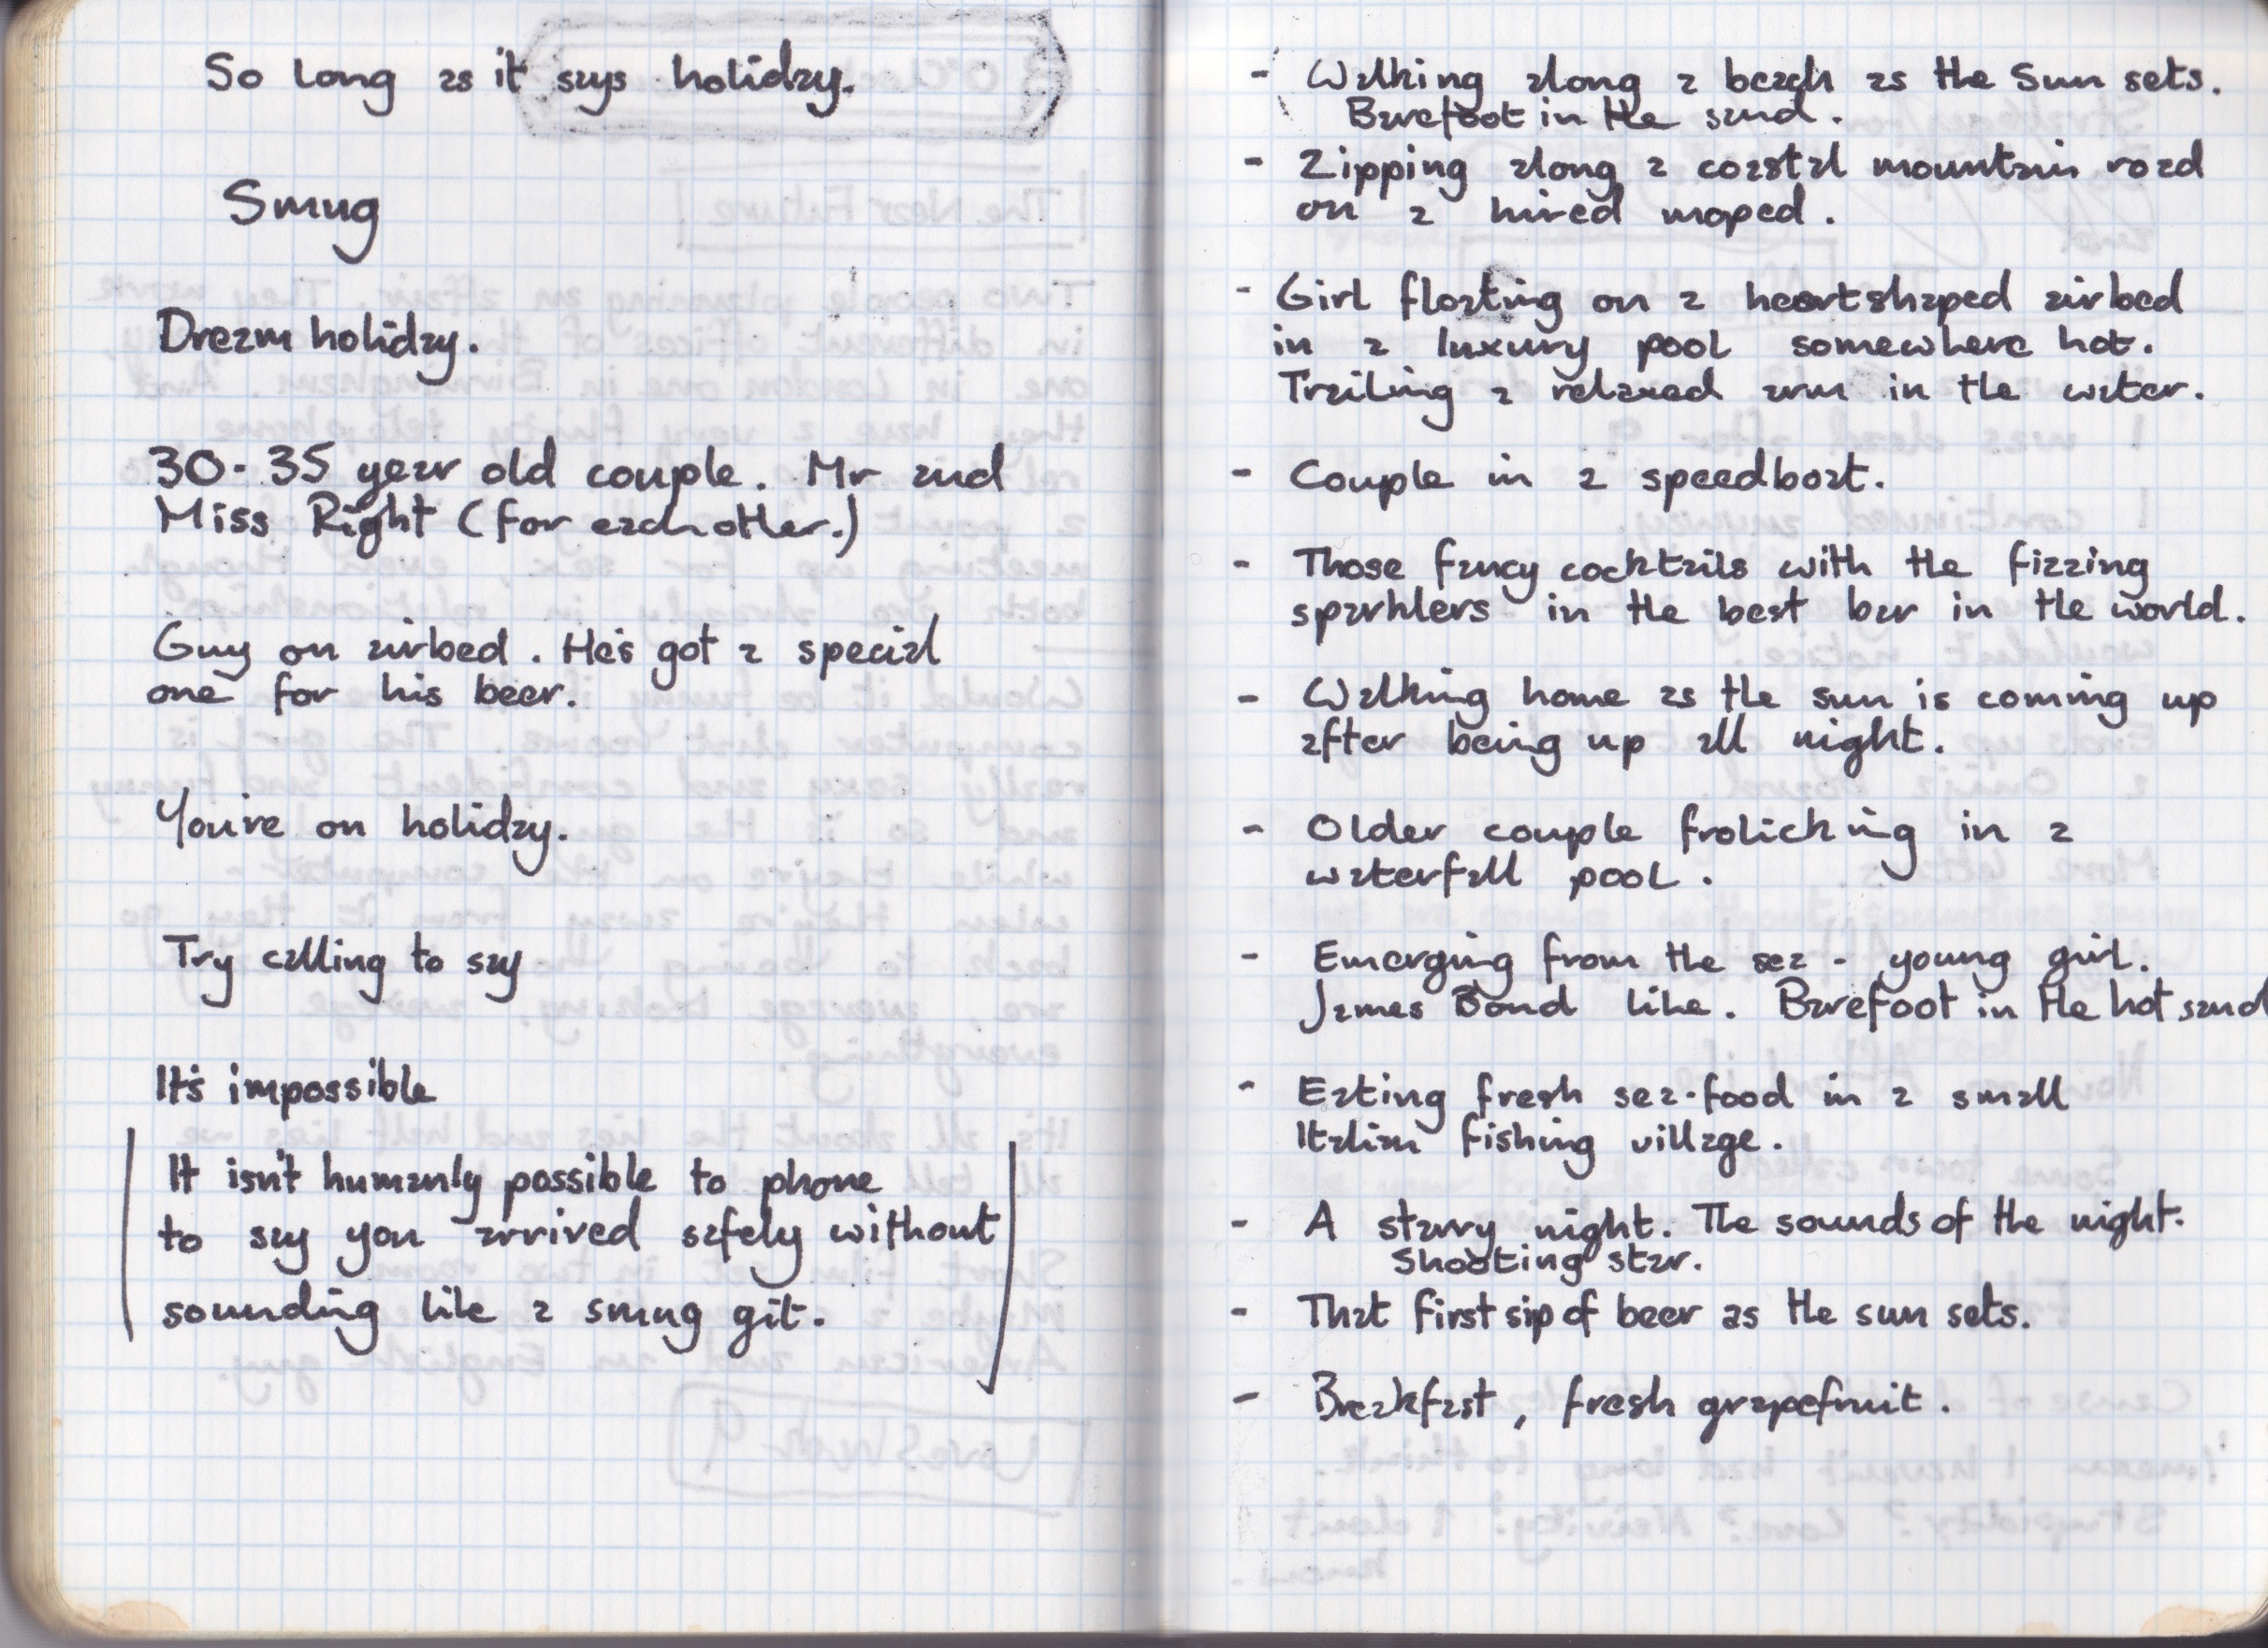 So long as it says holiday.
Smug
Dream holiday.
30-35 year old couple. Mr and
Miss Right (for each other.)
Guy on airbed. He's got a special
one for his beer.
You're on holiday.
Try calling to say
It's impossible
It isn't humanly possible to phone
to say you arrived safely without
sounding like a smug git.
- Walking along a beach as the Sun sets.
Barefoot in the sand.
- Zipping along a coastal mountain road
on a hired moped.
- Girl floating on a heartshaped airbed
in a luxury pool somewhere hot.
Trailing a relaxed arm in the water.
- Couple in a speedboat.
- Those fancy cocktails with the fizzing
sparklers in the best bar in the world.
- Walking home as the sun is coming up
after being up all night.
- Older couple frolicking in a
waterfall pool.
- Emerging from the sea - young girl.
James Bond like. Barefoot in the hot sand
- Eating fresh sea-food in a small
Italian fishing village.
- A starry night. The sounds of the night.
Shooting star.
- That first sip of beer as the sun sets.
- Breakfast, fresh grapefruit.